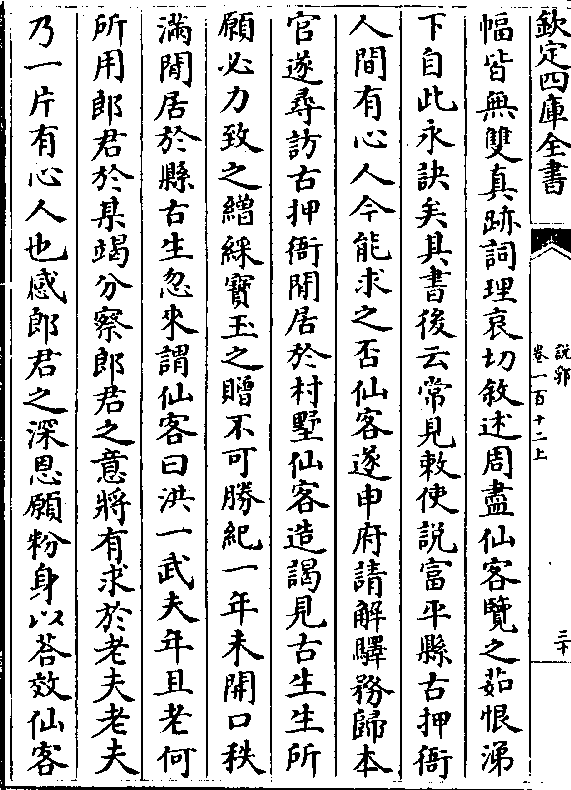 欽定四庫全書
說郛
卷一百十二上
三十
幅皆無雙真跡詞理哀切敘述周盡仙客覽之茹恨涕
下自此永訣矣其書後云常見敕使說富平縣古押衙
人間有心人今能求之否仙客遂申府請解驛務歸本
官遂尋訪古押衙閒居於村墅仙客造謁見古生生所
願必力致之繒綵寶玉之贈不可勝紀一年未開口秩
滿閒居於縣古生忽來謂仙客曰洪一武夫年且老何
所用郎君於某竭分察郎君之意將有求於老夫老夫
乃一片有心人也感郎君之深恩願粉身以荅效仙客